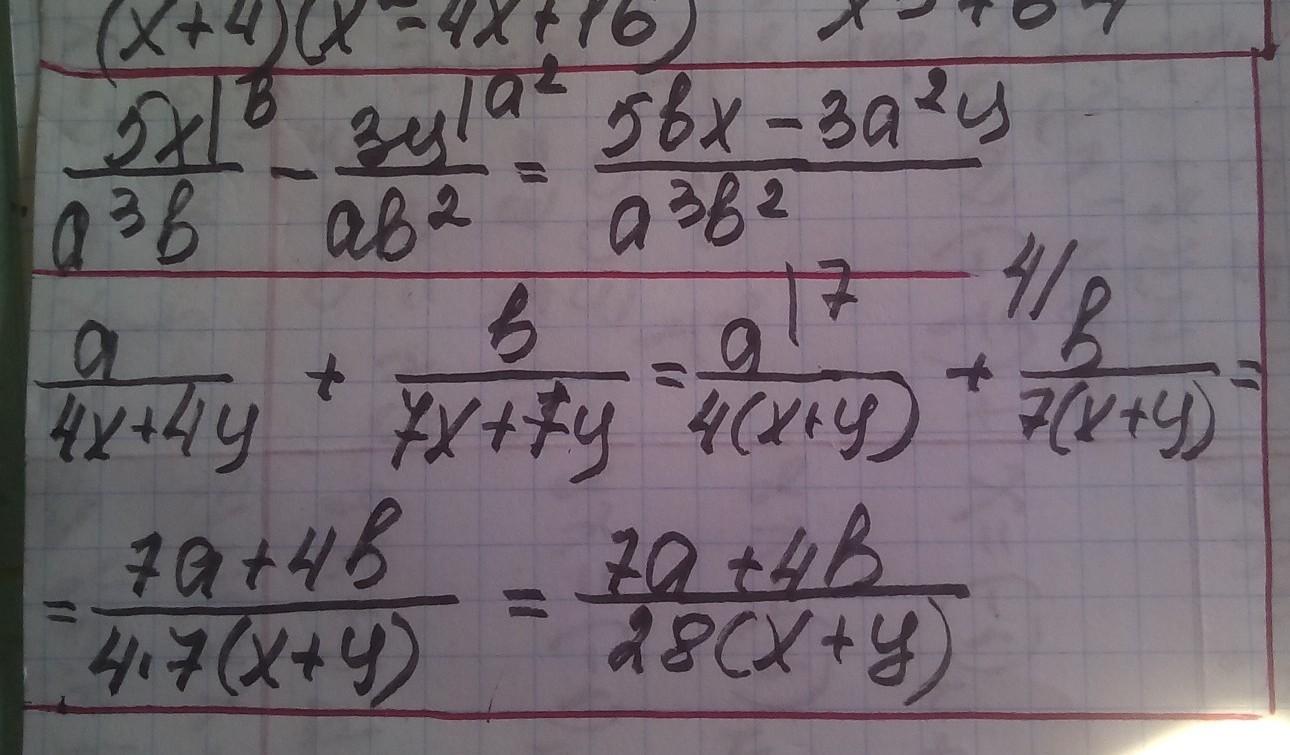 (x+4)(x²-4x+16) x³+64
5x|ᵇ / a³b - 3y|ᵃ² / ab² = 5bx - 3a²y / a³b²
a / 4x+4y + b / 7x+7y = a|⁷ / 4(x+y) + ⁴/b / 7(x+y) =
= 7a+4b / 4·7(x+y) = 7a+4b / 28(x+y)